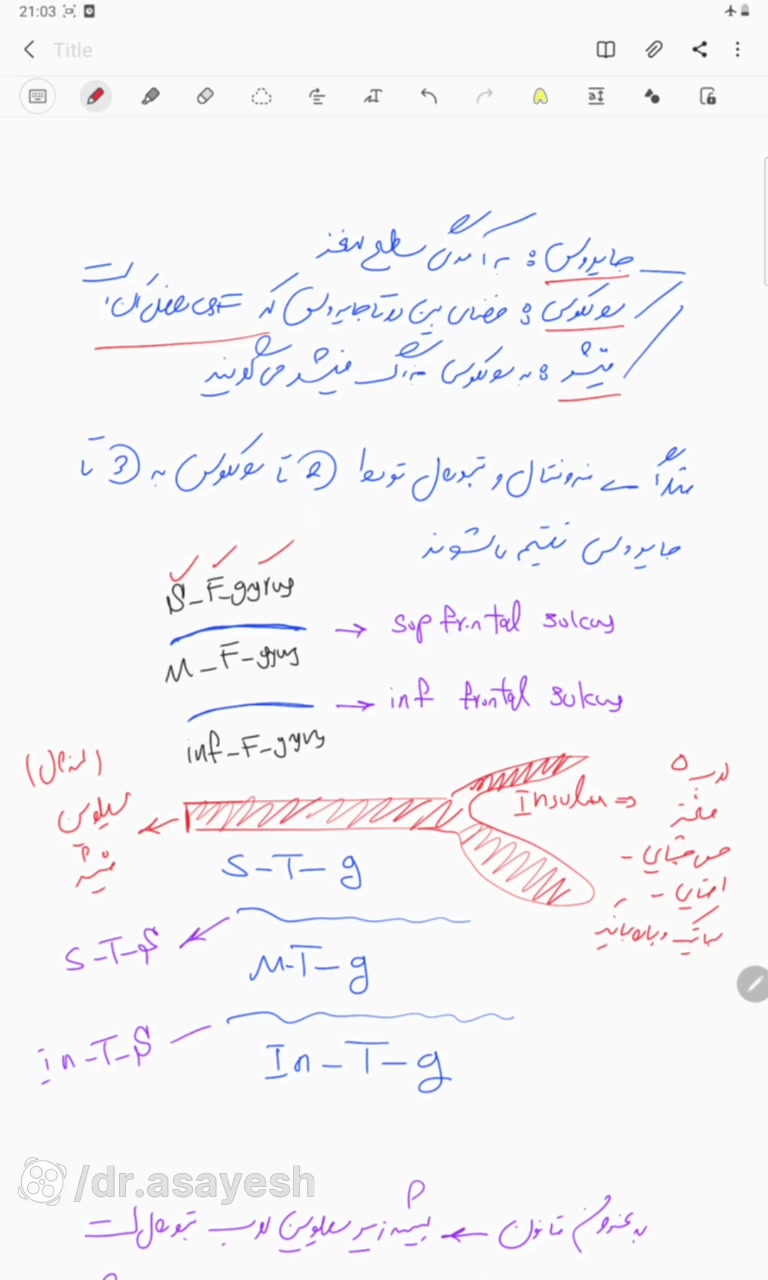 21:03
Title
جایروس: به آمدگی سطح مغز
سولکوس: فضای بین دو تا جایروس که
فیشر: به سولکوس بزرگ فیشر می گویند
فرونتال و تمپورال توسط 2 تا سولکوس به 3 تا
جایروس تقسیم می شوند
S-F-gyrus
→ sup frontal sulcus
M-F-gyrus
→ inf frontal sulcus
inf-F-gyrus
(لترال)
سیلوین
فیشر
Insula ⇒
لوب 5
مغز
حس چشایی -
احشایی -
S-T-g
S-T-S
M-T-g
in-T-S
In-T-g
/dr.asayesh
به عنوان قانون ← همیشه زیر سیلوین لوب تمپورال است